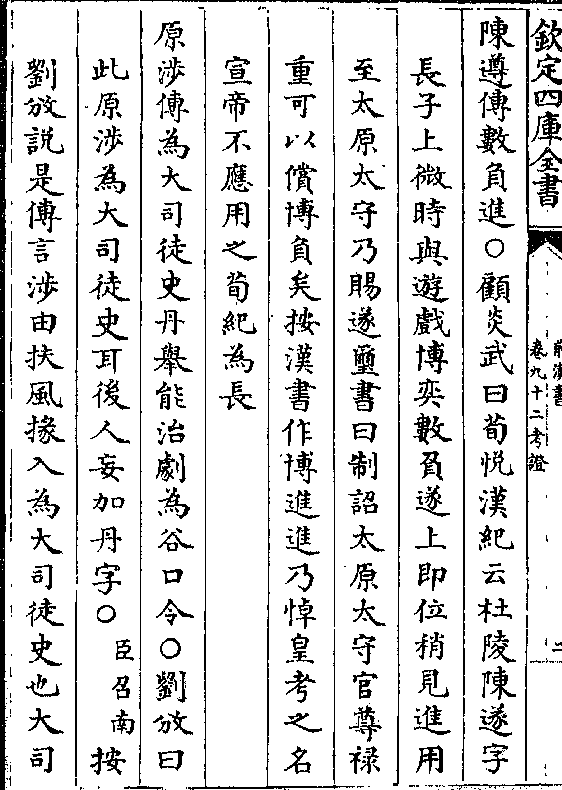 欽定四庫全書
前漢書
卷九十二考證
二
陳遵傳數負進〇顧炎武曰荀悅漢紀云杜陵陳遂字
長子上微時與遊戲博奕數負遂上即位稍見進用
至太原太守乃賜遂璽書曰制詔太原太守官尊祿
重可以償博負矣按漢書作博進進乃悼皇考之名
宣帝不應用之荀紀為長
原涉傳為大司徒史丹舉能治劇為谷口令〇劉攽曰
此原涉為大司徒史耳後人妄加丹字〇臣召南按
劉攽說是傳言涉由扶風掾入為大司徒史也大司